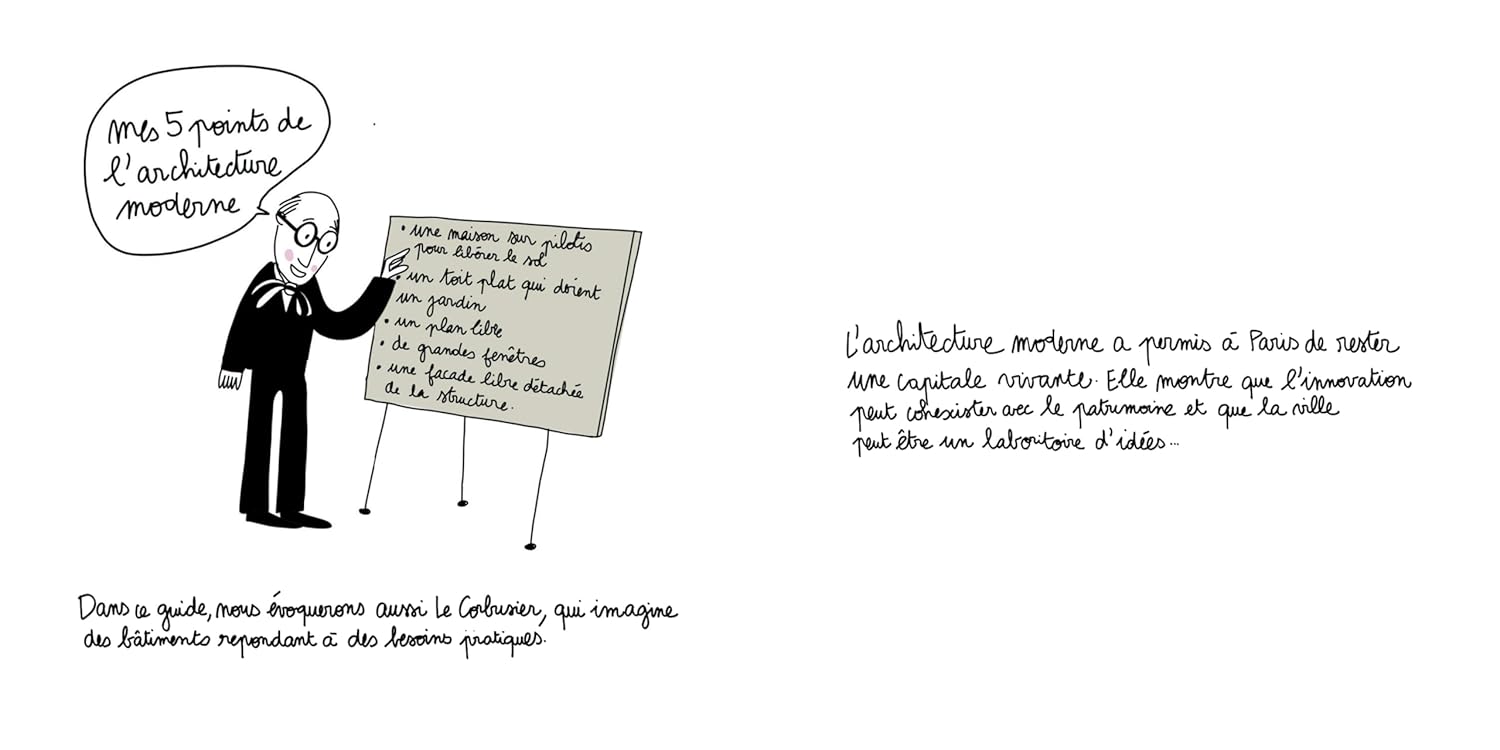 mes 5 points de
l'architecture
moderne
• une maison sur pilotis
pour libérer le sol
• un toit plat qui doient
un jardin
• un plan libre
• de grandes fenêtres
• une façade libre détachée
de la structure.
Dans ce guide, nous évoquerons aussi Le Corbusier, qui imagine
des bâtiments repondant à des besoins pratiques.
L'architecture moderne a permis à Paris de rester
une capitale vivante. Elle montre que l'innovation
peut cohexister avec le patrumoine et que la ville
peut être un laboritoire d'idées...